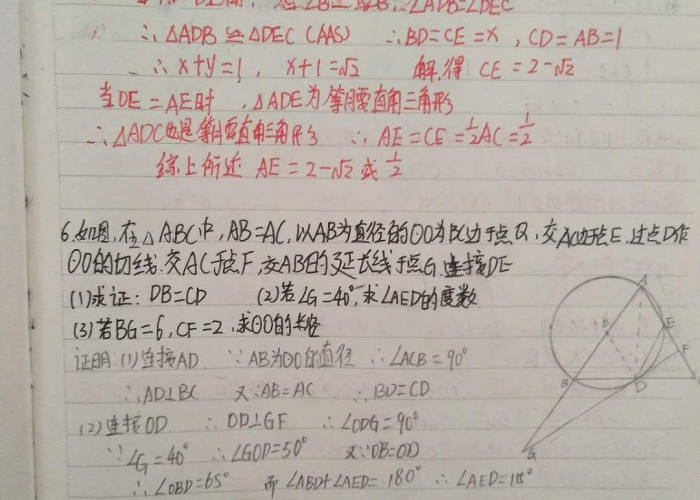 ∠ADB=∠DEC
∴△ADB≌△DEC (AAS) ∴BD=CE=x, CD=AB=1
∴x+y=1, x+1=√2 解得 CE=2-√2
当DE=AE时, △ADE为等腰直角三角形
∴△ADC也是等腰直角三角形 ∴AE=CE=½AC=½
综上所述 AE=2-√2或½
6.如图,在△ABC中,AB=AC,以AB为直径的⊙O为BC边于点D,交AC边于点E,过点D作
⊙O的切线.交AC于点F,交AB的延长线于点G.连接DE
(1)求证:DB=CD (2)若∠G=40°,求∠AED的度数
(3)若BG=6,CF=2,求⊙O的半径
证明:(1)连接AD ∵AB为⊙O的直径 ∴∠ACB=90°
∴AD⊥BC 又∵AB=AC ∴BD=CD
(2)连接OD ∴OD⊥GF ∴∠ODG=90°
∵∠G=40° ∴∠GOD=50° 又∵OB=OD
∴∠OBD=65° 而∠ABD+∠AED=180° ∴∠AED=115°
A
O
E
F
B
D
G